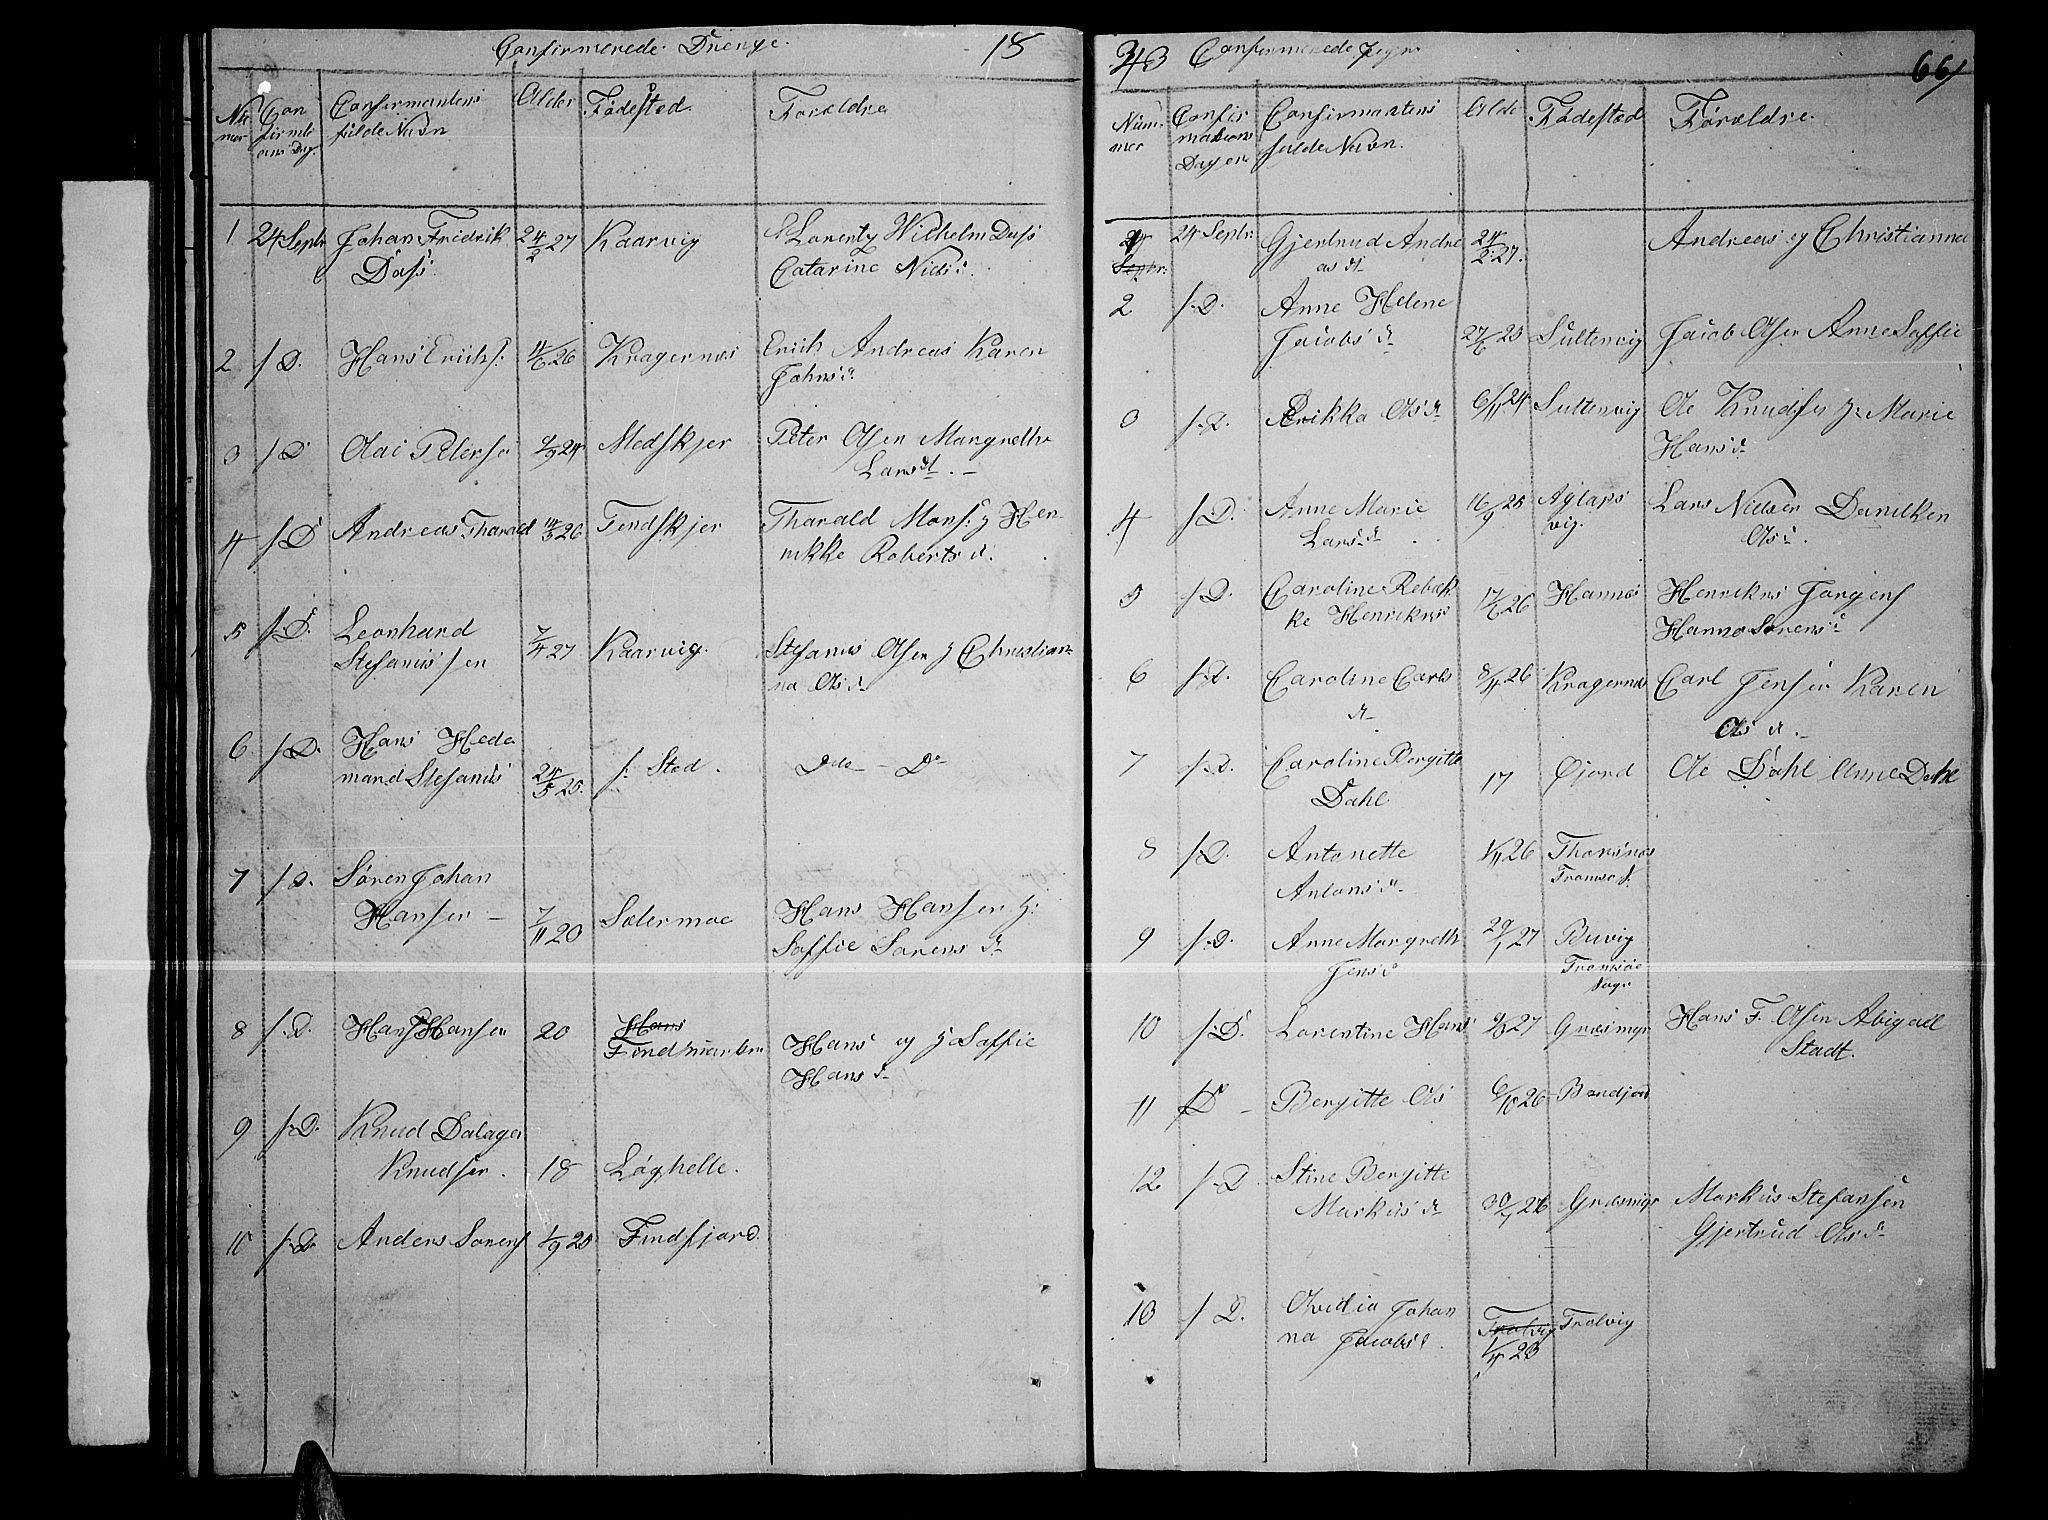 Confirmerede Drenge. 18
Nu
mer
Con
firmti
ons Dag.
Confirmantens
fulde Navn
Alder
Fødested.
Forældre
1 24 Septr Johan Fridrik 24/2 27 Kaarvig Lorentz Wilhelm Dass
Dass. Catarine Nielsd.
2 s. D. Hans Erichs. 11/6 26 Kragernes Erich Andreas Karen
Johnsd.
3 s. D Olai Peterse 2/9 24 Medskjer Peter Olsen Margrethe
Larsd. –
4 s. D Andreas Tharald 14/3 26 Tendskjer Tharald Mons. & Hen
rikke Roberts d.
5 s. D. Leonhard
Stefanussen 7/4 27 Kaarvig. Stefanus Olsen & Christian
na Olsd.
6 s. D. Hans Hede
mand Stefanus 24/5 25. s. Sted. Do – Do
7 s. D. Søren Johan
Hansen – 7/11 20 Sætermoe Hans Hansen &
Saffie Sørens d.
8 s. D. Hans Hansen 20 Hans
Findmarken Hans og & Saffie
Hans d.
9 s. D. Knud Dalager
Knudsen. 18 Løghelle.
10 s. D. Anders Sørens 1/9 25 Findfjord.
343 Confirmerede Piger 661
Num
mer
Confir
mations
Dagen
Confirmantens
fulde Navn.
Alde
Fødested
Forældre.
1 24 Septr. Gjertrud Andre 24/2 27. Andreas og Christianna
Septr. as d.
2 s. D. Anne Helene
Jacobs d. 27/6 25 Sultenvig Jacob Olsen Anne Saffie
3 s. D. Erikka Ols d. 6/11 24 Sultenvig Ole Knudsen & Marie
Hansd.
4 s. D. Anne Marie 16/9 25 Aglaps Lars Nielsen Danelken
Larsd. vig. Olsd.
5 s. D. Caroline Rebek 17/6 26 Hannes Henrikus Jørgens
ke Henrikus Hanna Sørensd.
6 s. D. Caroline Carls 8/4 26 Kragernes Carl Jensen Karen
d. Ols d.
7 s. D. Caroline Bergitte 17 Øjord Ole Dahl Anne Dahl
Dahl
8 s. D. Antonette 1/11 26 Thorsnæs
Antonsd. Tromsø s.
9 s. D. Anne Margreth 29/1 27 Buvig
Jensd. Tromsøe
Sogn
10 s. D. Lorentine Hans 9/3 27 Græsmyr Hans F. Olsen Abigael
Stadt.
11 s. D – Bergitte Ols 6/10 26 Bandjord
12 s. D Stine Bergitte
Markus d. 30/7 26 Græsmyr Markus Stefansen
Gjertrud Olsd.
13 s. D. Ovedia Johan Trolvig Trolvig
na Jacobsd. 1/4 23